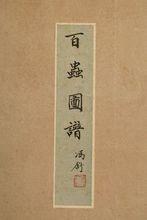 百蟲圖譜
馮舒